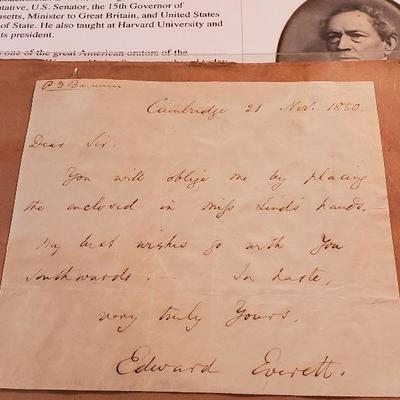 tative, U.S. Senator, the 15th Governor of
setts, Minister to Great Britain, and United States
of State. He also taught at Harvard University and
its president.
one of the great American orators of the
P T Barnum
Cambridge 21 Nov. 1850.
Dear Sir.
You will oblige me by placing
the enclosed in Miss Lind's hands.
My best wishes go with you
Southwards. — In haste,
very truly Yours.
Edward Everett.